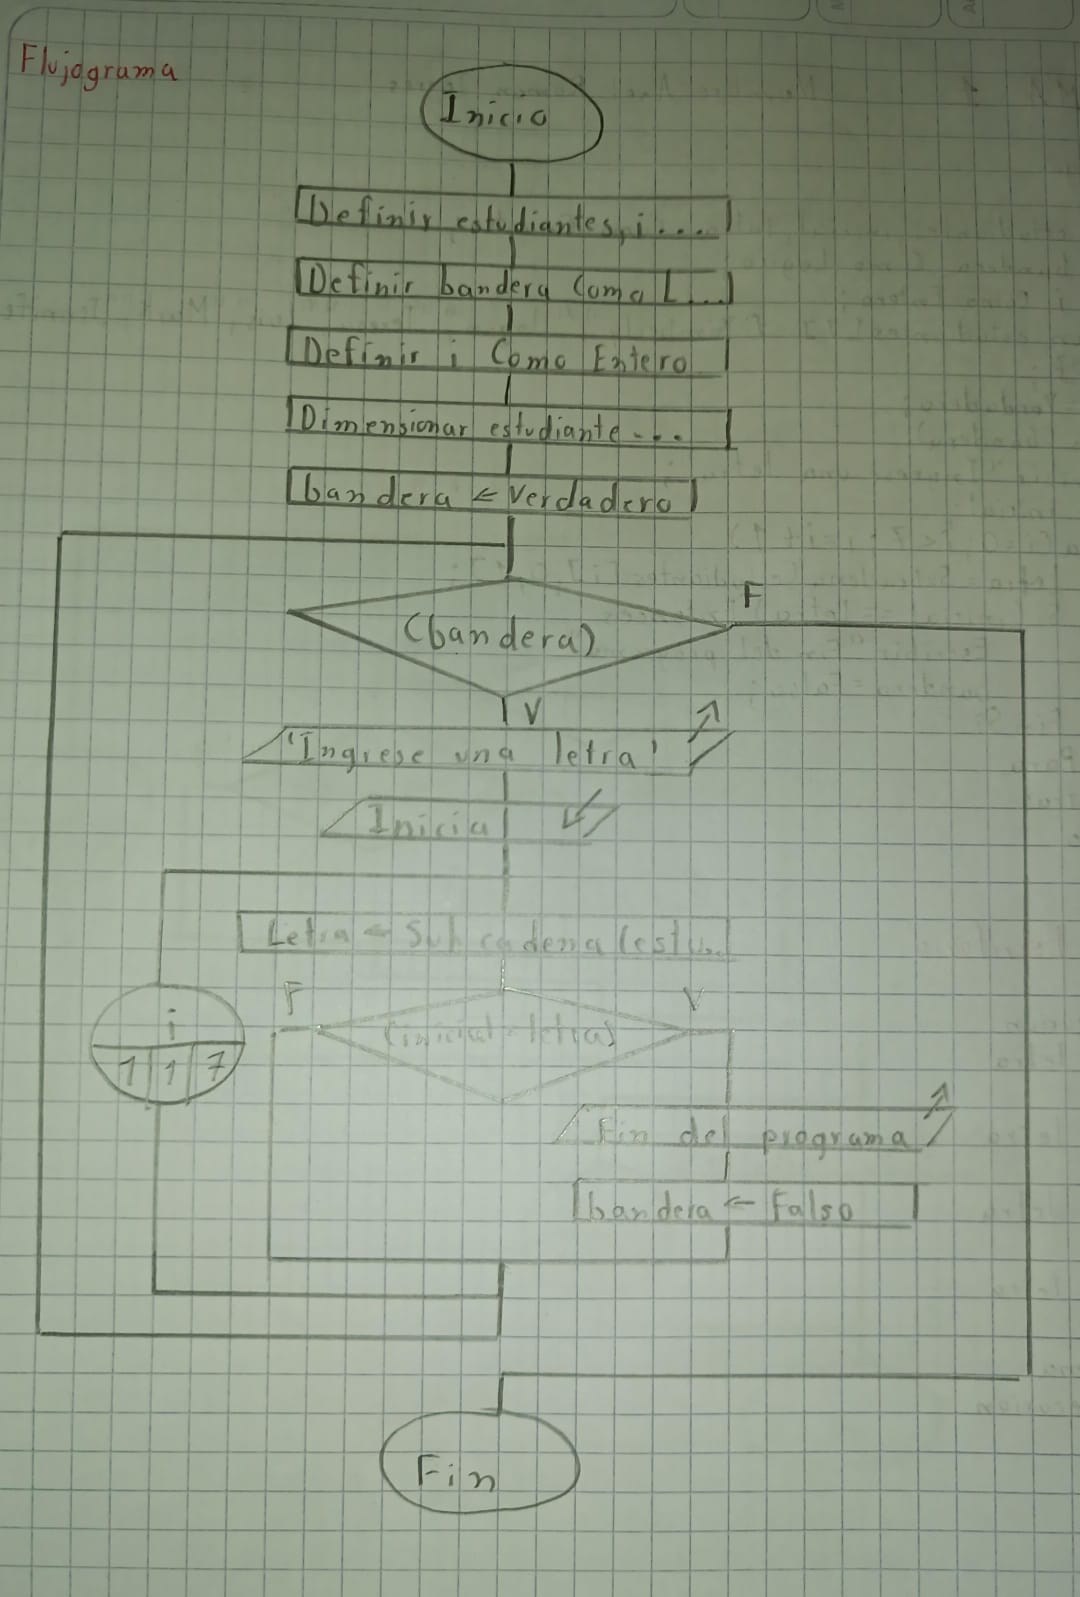 Flujograma
Inicio
Definir estudiantes, i...
Definir bandera Como L...
Definir i Como Entero
Dimensionar estudiante...
bandera ← Verdadero
(bandera)
F
V
'Ingrese una letra'
Inicial
Letra ← Subcadena (estu...
F
V
(inicial=letra)
i
1 1 7
Fin del programa
bandera ← Falso
Fin